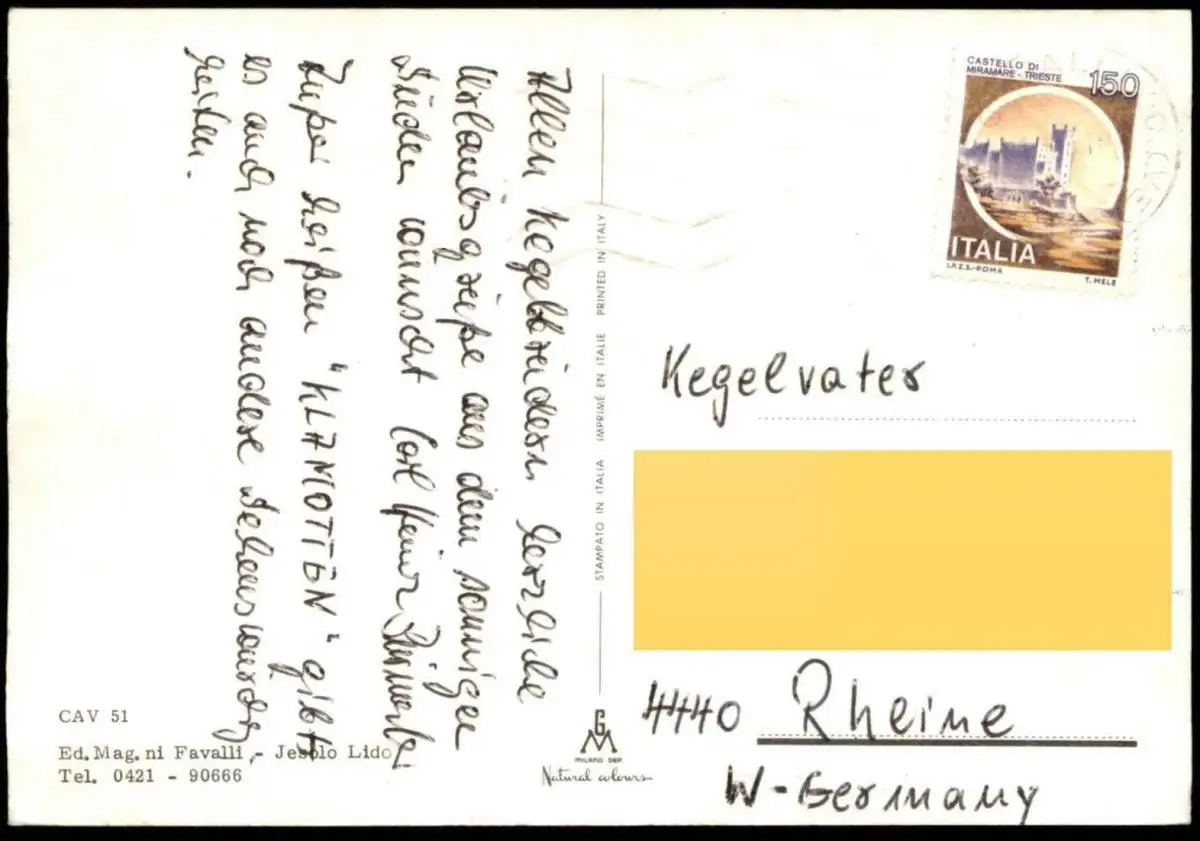 Allen Kegelbrüdern herzliche
Urlaubsgrüße aus dem sonnigen
Süden wünscht Carl Heinz
Außer heißen "KLAMOTTEN" gibt
es auch noch andere Sehenswürdig
keiten.
CAV 51
Ed. Mag. ni Favalli - Jesolo Lido
Tel. 0421 - 90666
STAMPATO IN ITALIA IMPRIMÉ EN ITALIE PRINTED IN ITALY
GM
MILANO DEP
Natural colours
CASTELLO DI
MIRAMARE - TRIESTE
150
ITALIA
I.P.Z.S. - ROMA
T. MELE
Kegelvater
4440 Rheine
W-Germany